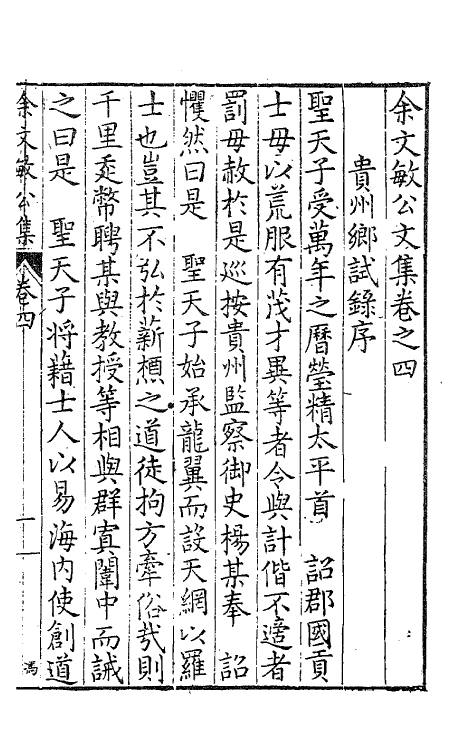 余文敏公文集卷之四
貴州鄉試錄序
聖天子受萬年之曆瑩精太平首　詔郡國貢
士毋以荒服有茂才異等者令與計偕不適者
罰毋赦於是巡按貴州監察御史楊某奉　詔
懼然曰是　聖天子始承龍翼而設天網以羅
士也豈其不弘於薪槱之道徒拘方牽俗哉則
千里乘幣聘某與教授等相與群寘闈中而誡
之曰是　聖天子將藉士人以易海内使創道
余文敏公集　卷四　一
馮